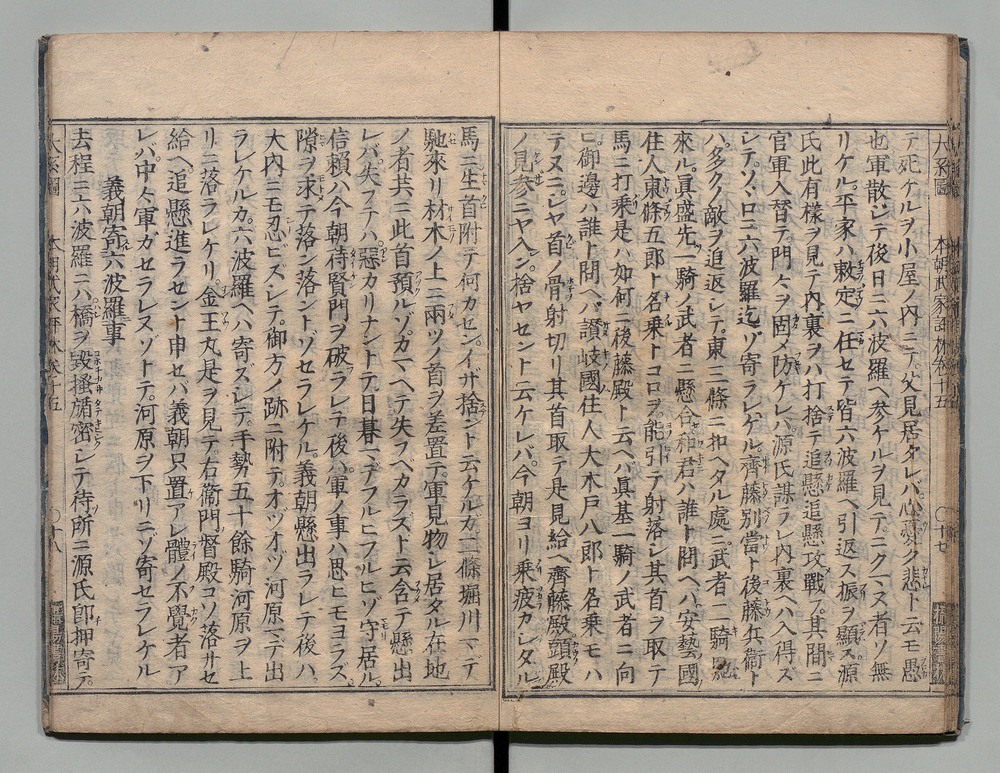 テ死ケルヲ小屋ノ内ニテ父見居タレバ心憂ク悲ト云モ愚
也軍散シテ後日ニ六波羅ヘ参ケルヲ見テニクマヌ者ソ無
リケル平家ハ敕定ニ任セテ皆六波羅ヘ引返ス振ヲ顯ス源
氏此有樣ヲ見テ内裏ヲハ打捨テ追懸追懸攻戰フ其間ニ
官軍入替テ門々ヲ固メ防ケレバ源氏謀ラレ内裏ヘハ入得ス
シテソヾロニ六波羅迄ゾ寄ラレケル齊藤別當ト後藤兵衞ト
ハ多クノ敵ヲ追返シテ東三條ニ扣ヘタル處ニ武者二騎
來ル眞盛先一騎ノ武者ニ懸合和君ハ誰ト問ヘバ安藝國ノ
住人東條五郎ト名乗トコロヲ能引テ射落シ其首ヲ取テ
馬ニ打乗是ハ如何ニ後藤殿ト云ヘハ眞基一騎ノ武者ニ向
ヒ御邊ハ誰ト問ヘバ讚岐國ノ住人大木戸八郎ト名乗モハ
テヌニシヤ首ノ骨射切リ其首取テ是見給ヘ齊藤殿頭殿
ノ見参ニヤ入ン捨ヤセント云ケレバ今朝ヨリ乗疲カレタル
大系圖 本朝武家評林卷十五 〇十七
馬ニ生首附テ何カセンイザ捨ント云ケルカ二條堀川マデ
馳來リ材木ノ上ニ兩ツノ首ヲ差置テ軍見物シ居タル在地
ノ者共ニ此首預ルゾカマヘテ失フベカラスト云含テ懸出
レバ失フテハ惡カリナントテ日暮マデフルヒフルヒゾ守居ル
信頼ハ今朝待賢門ヲ破ラレテ後ハ軍ノ事ハ思ヒモヨラズ
隙ヲ求テ落ン落ントゾセラレケル義朝懸出ラレテ後ハ
大内ニモ忍ビズシテ御方ノ跡ニ附テオヅオヅ河原マデ出
ラレケルカ六波羅ヘハ寄ズシテ手勢五十餘騎河原ヲ上
リニ落ラレケリ金王丸是ヲ見テ右衞門督殿コソ落サセ
給ヘ追懸進ラセント申セバ義朝只置アレ體ノ不覺者ア
レバ中々軍ガセラレスゾトテ河原ヲ下リニゾ寄セラレケル
義朝寄六波羅事
去程ニ六波羅ニハ橋ヲ毀搔楯密シテ待所ニ源氏即押寄テ
大系圖 本朝武家評林卷十五 〇十八